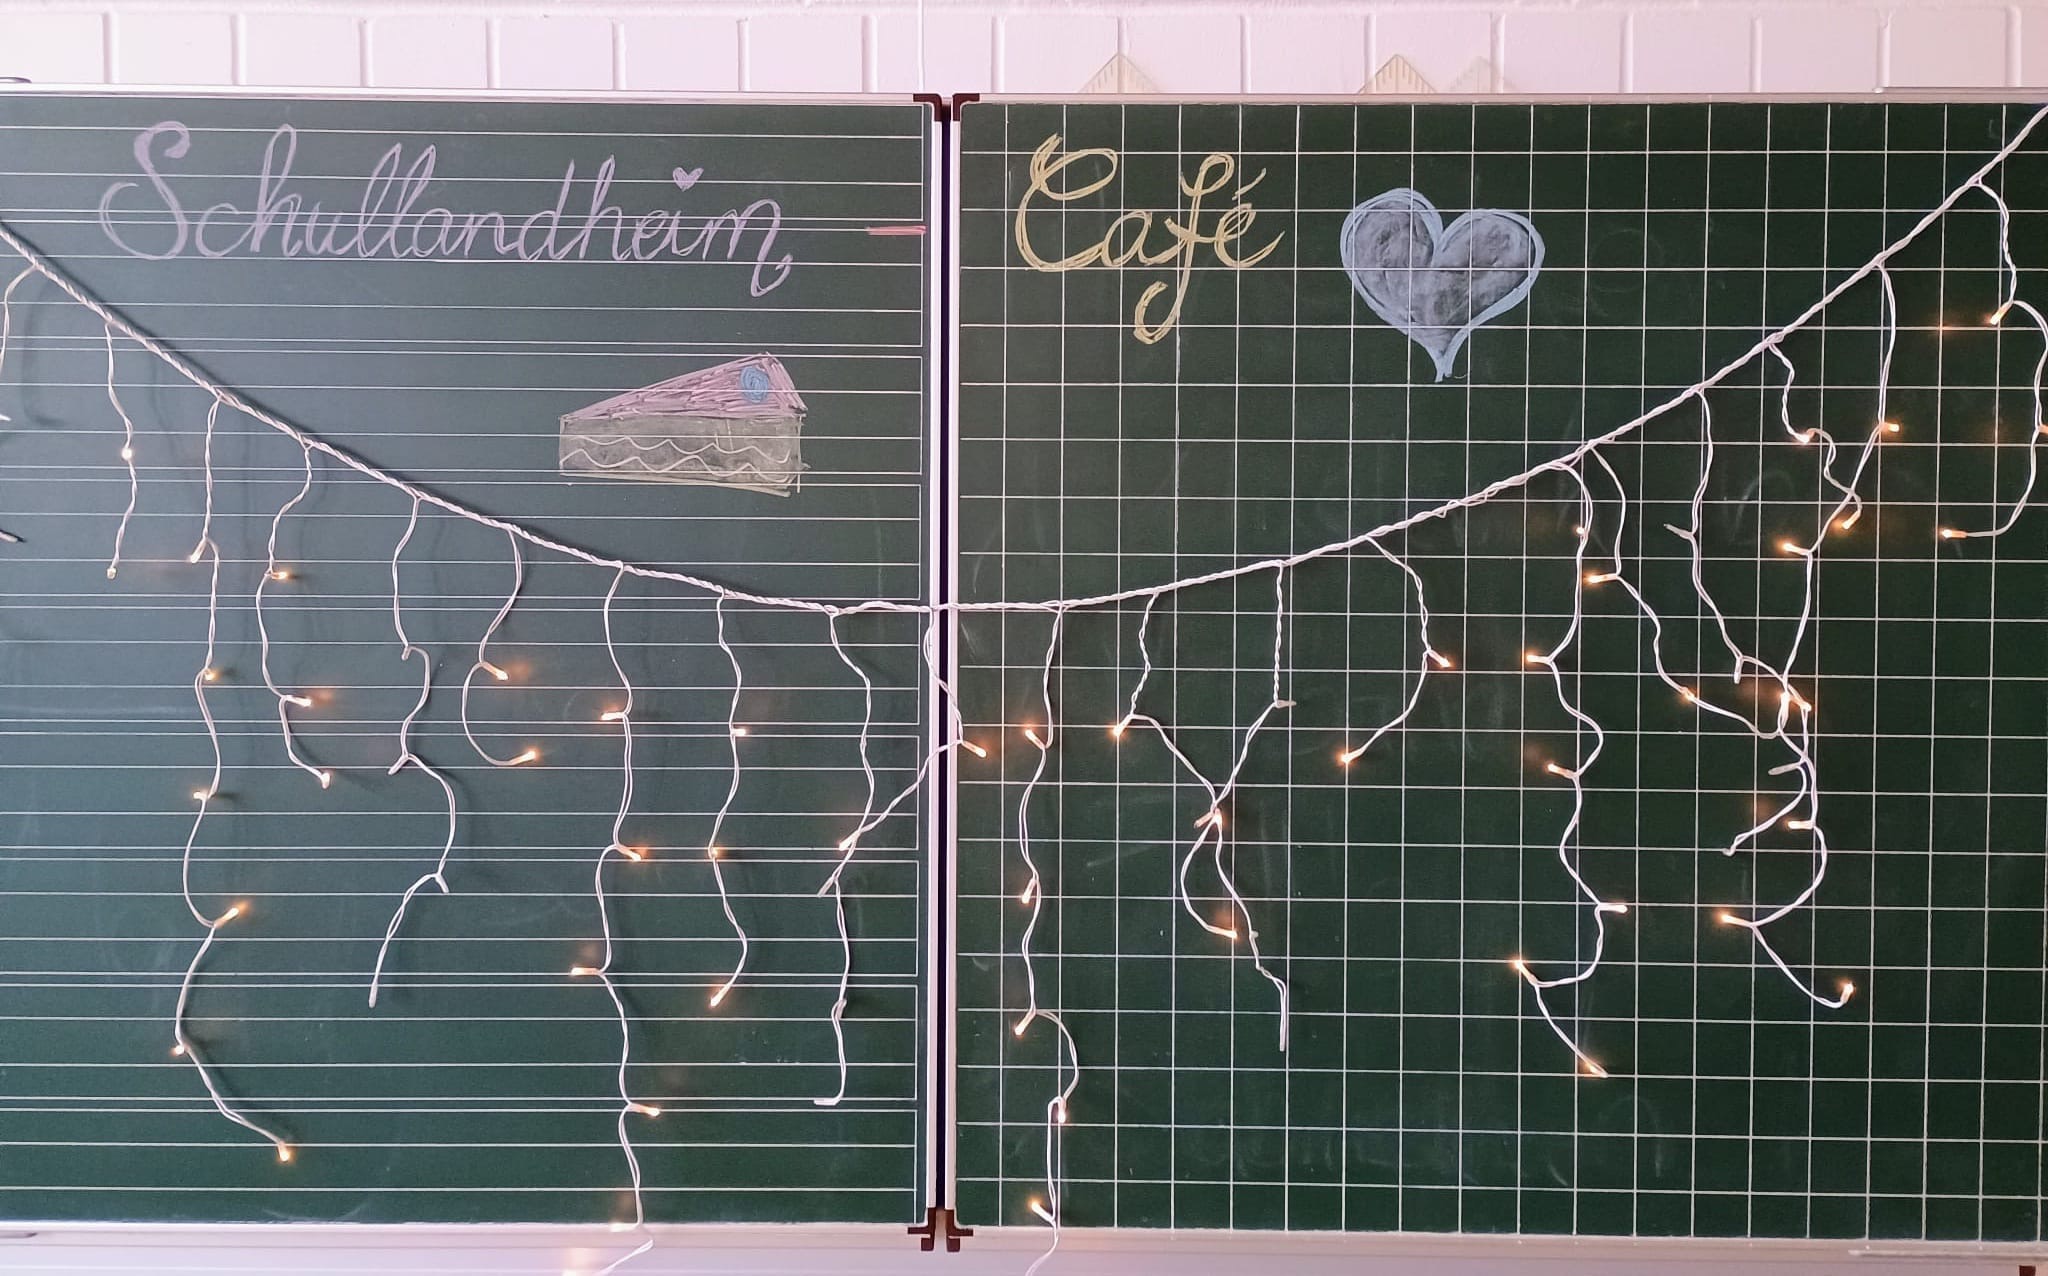 Schullandheim Café